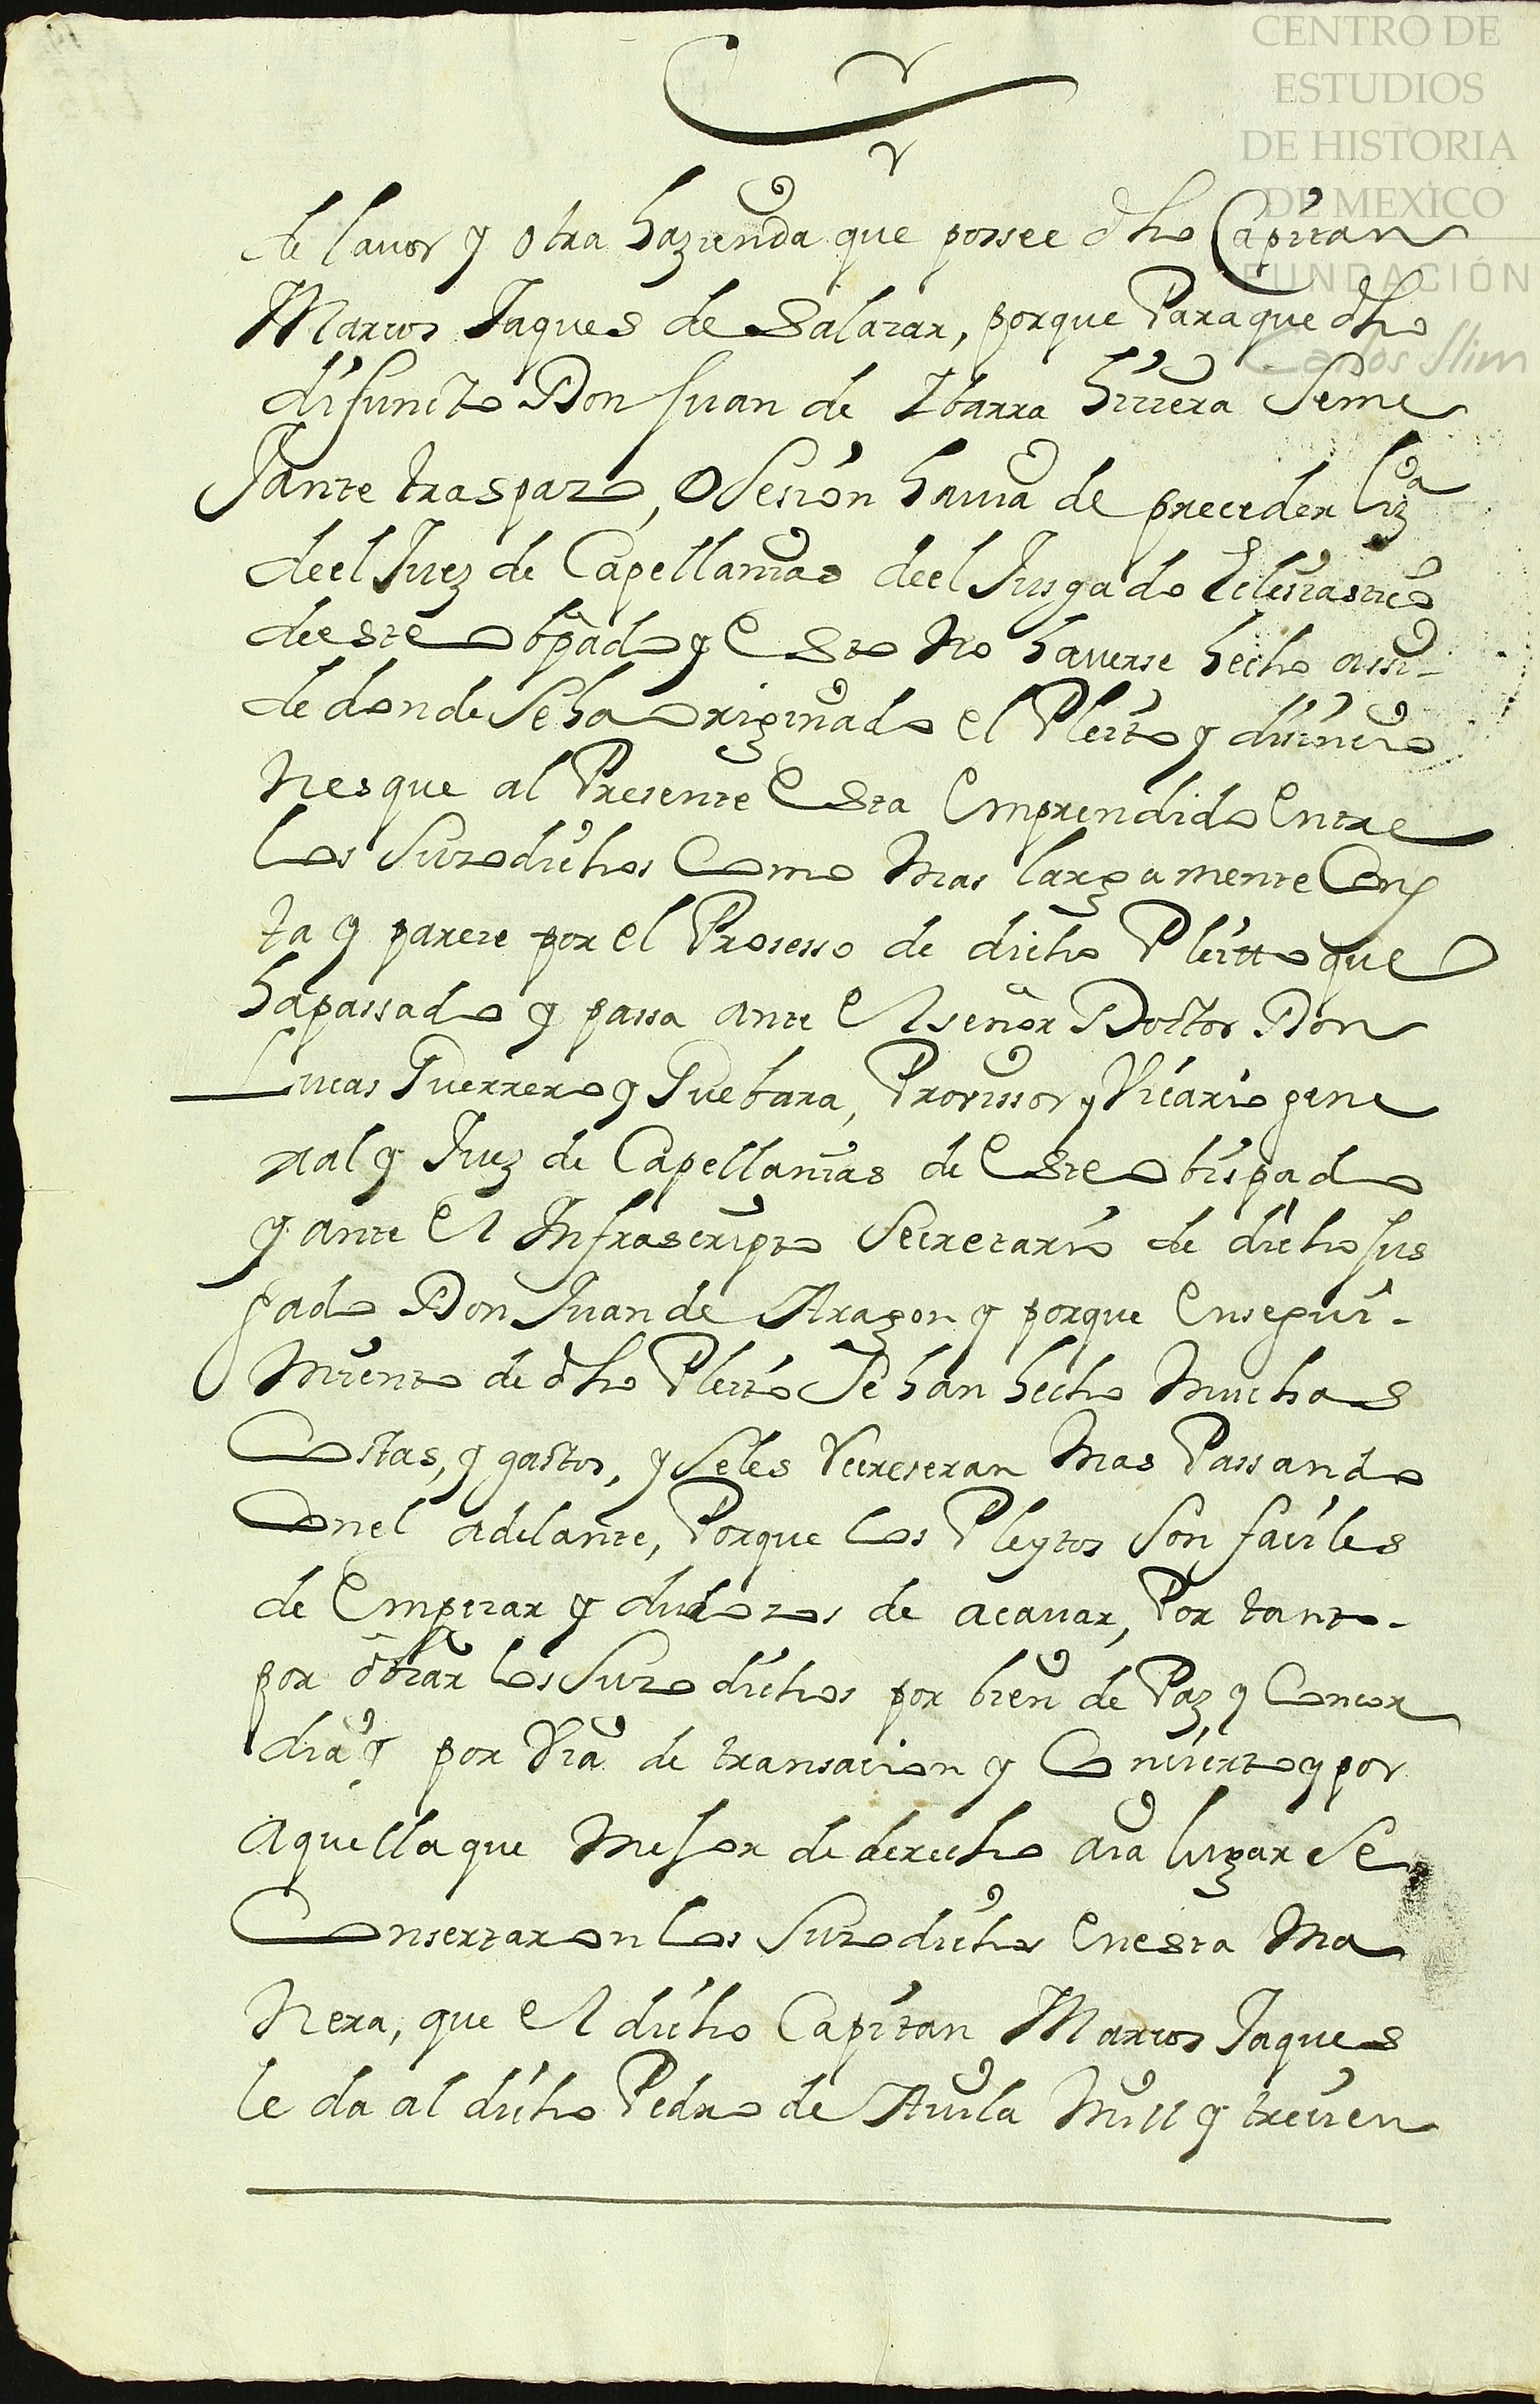 CENTRO DE
ESTUDIOS
DE HISTORIA
DE MEXICO
FUNDACIÓN
Carlos Slim
de lavor y otra hazienda que possee dho Capitan
Marcos Jaques de Salazar, porque Paraque dho
difuncto Don Juan de Ibarra hiciera Seme
Jante traspazo, o Sesion havia de preceder liz.a
de el Juez de Capellanias deel Jusgado Eclesiastico
deeste obpado y Esto No haverse hecho assi-
de donde Seha originado el Pleito y disencio
Nes que al Presente Esta Emprendido Entre
los Suzodichos Como Mas largamente Cons
ta y pareze por el Prosesso de dicho Pleitto que
ha passado y passa ante El señor Doctor Don
Lucas Guerrero y Guebara, Provissor y Vicario gene
ral y Juez de Capellanias de Este obispado
y ante El Infrascripto Secretario de dicho Jus
gado Don Juan de Aragon y porque Enseguí-
Miento de dho Pleito Se han hecho Muchas
Costas, y gastos, y Seles Recreseran Mas Passando
Conel adelante, Porque los Pleytos Son faciles
de Empezar y dudozos de acavar, Por tanto-
por obiar los Suzodichos por bien de Paz y Concor
dia y por Via de transacion y Convierto y por
aquella que Mejor de derecho aia lugar Se
Consertaron los Suzodichos Enesta Ma
Nera, que El dicho Capitan Marcos Jaques
le da al dicho Pedro de Avila Mill y trecien